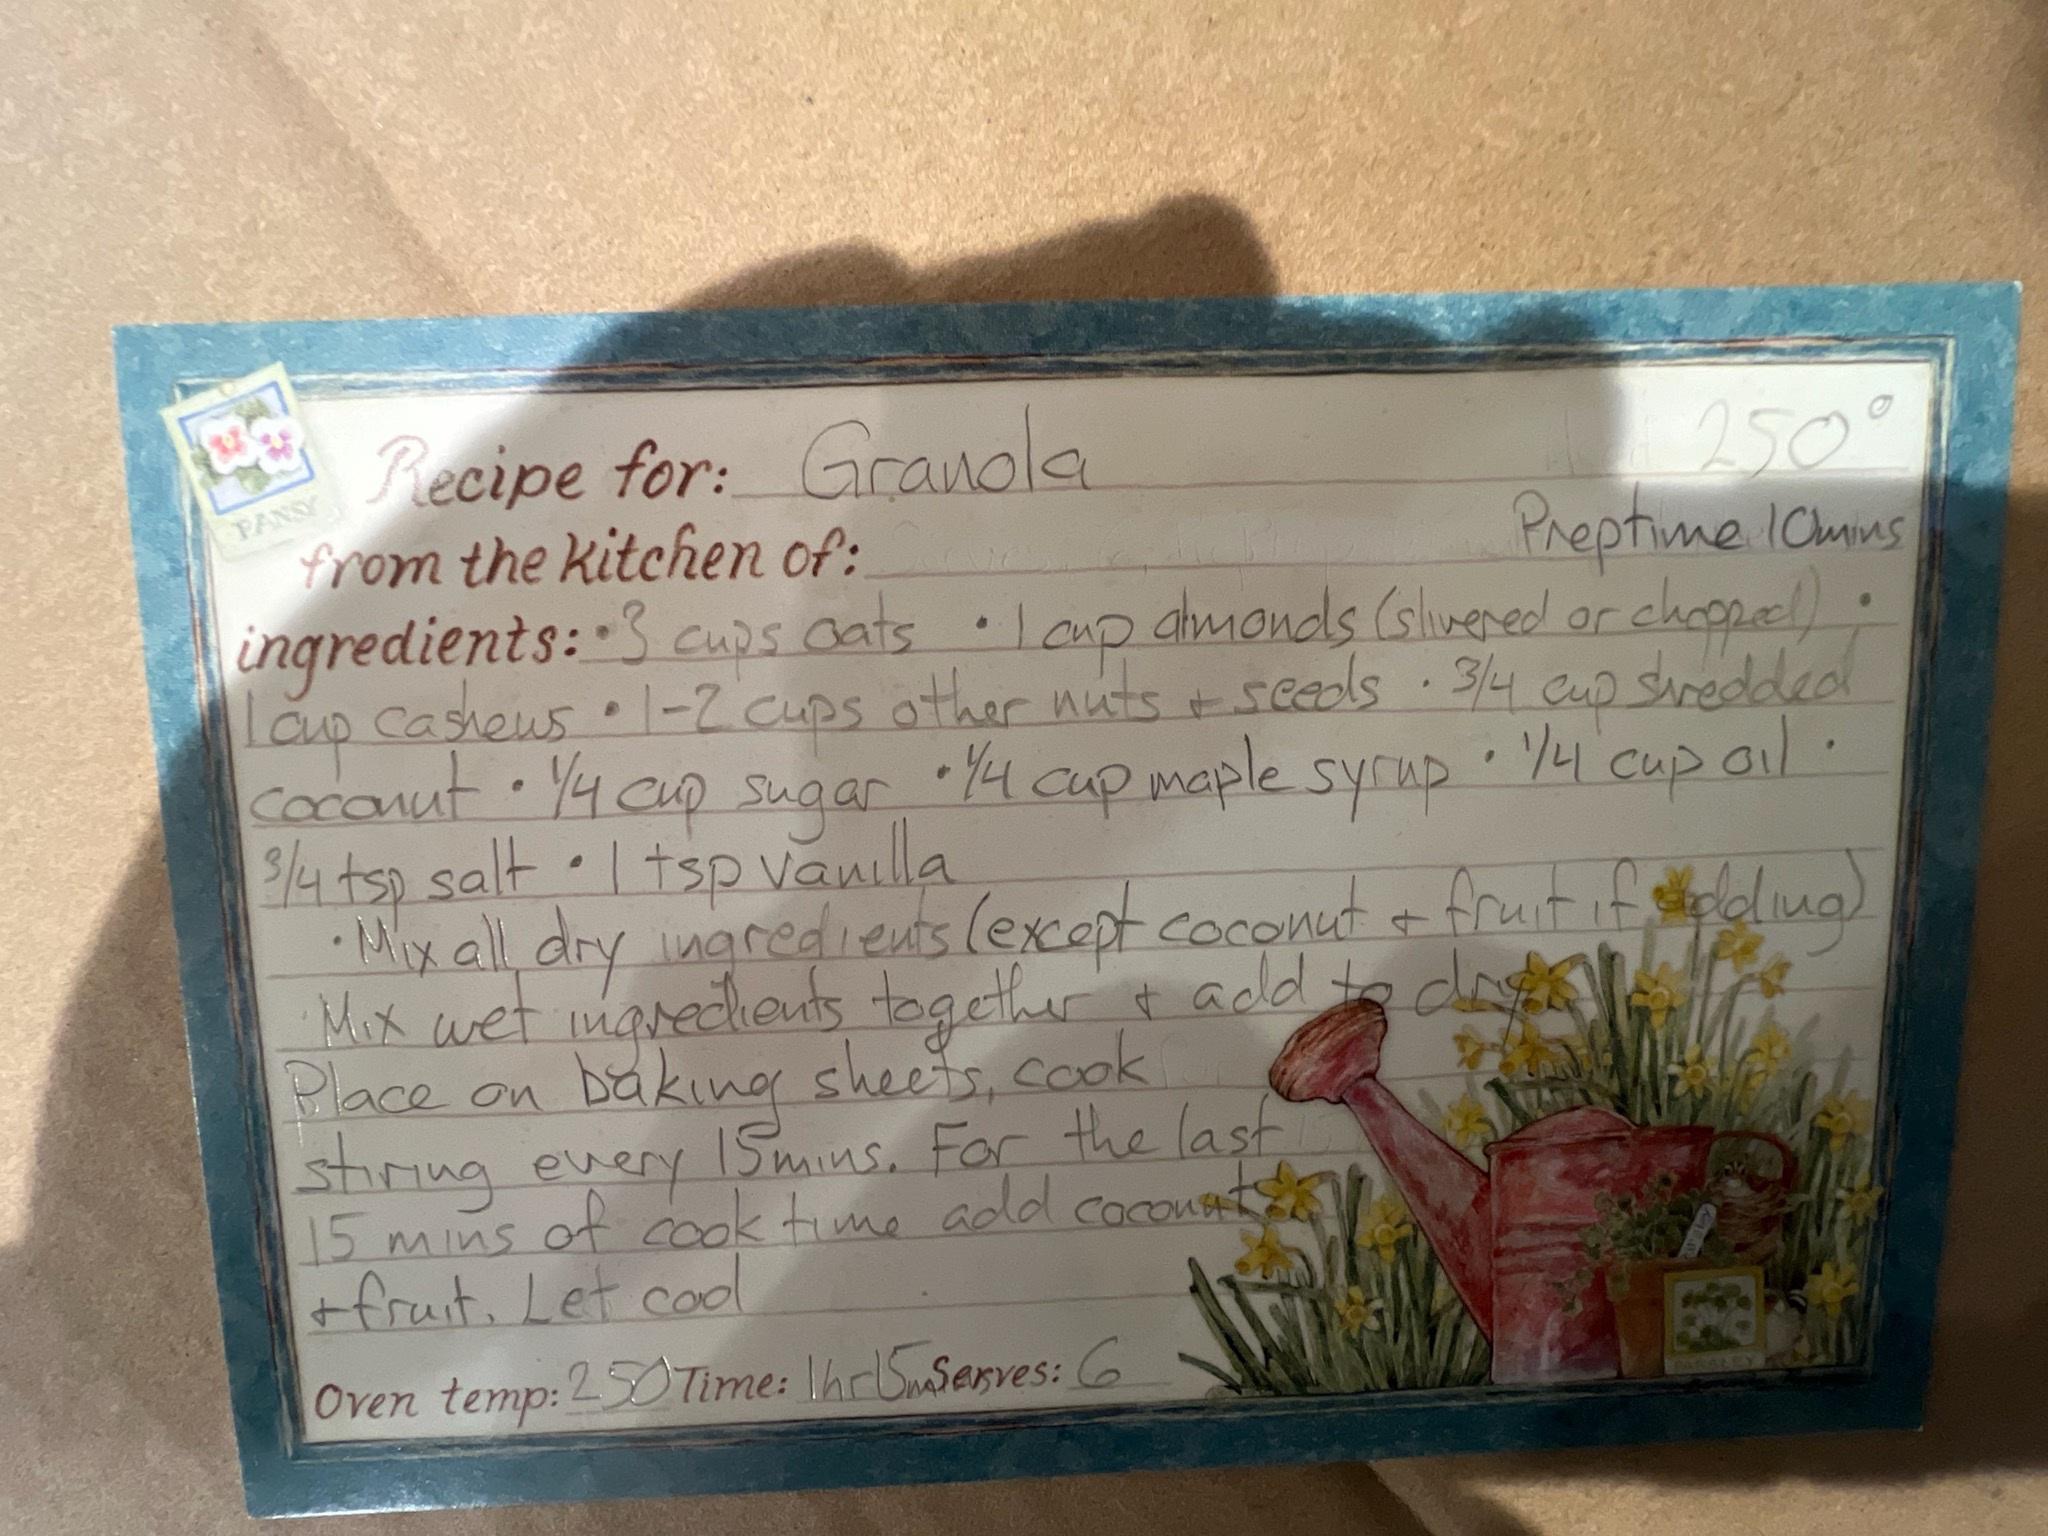 Granola 250°
Recipe for:
PANSY
Preptime 10mins
from the kitchen of:
ingredients: • 3 cups oats • 1 cup almonds (slivered or chopped) •
1 cup cashews • 1-2 cups other nuts + seeds • 3/4 cup shredded
coconut • 1/4 cup sugar • 1/4 cup maple syrup • 1/4 cup oil •
3/4 tsp salt • 1 tsp vanilla
• Mix all dry ingredients (except coconut + fruit if adding)
Mix wet ingredients together + add to dry
Place on baking sheets, cook
stiring every 15mins. For the last
15 mins of cook time add coconut
+ fruit. Let cool
Oven temp: 250 Time: 1hr 15mins Serves: 6